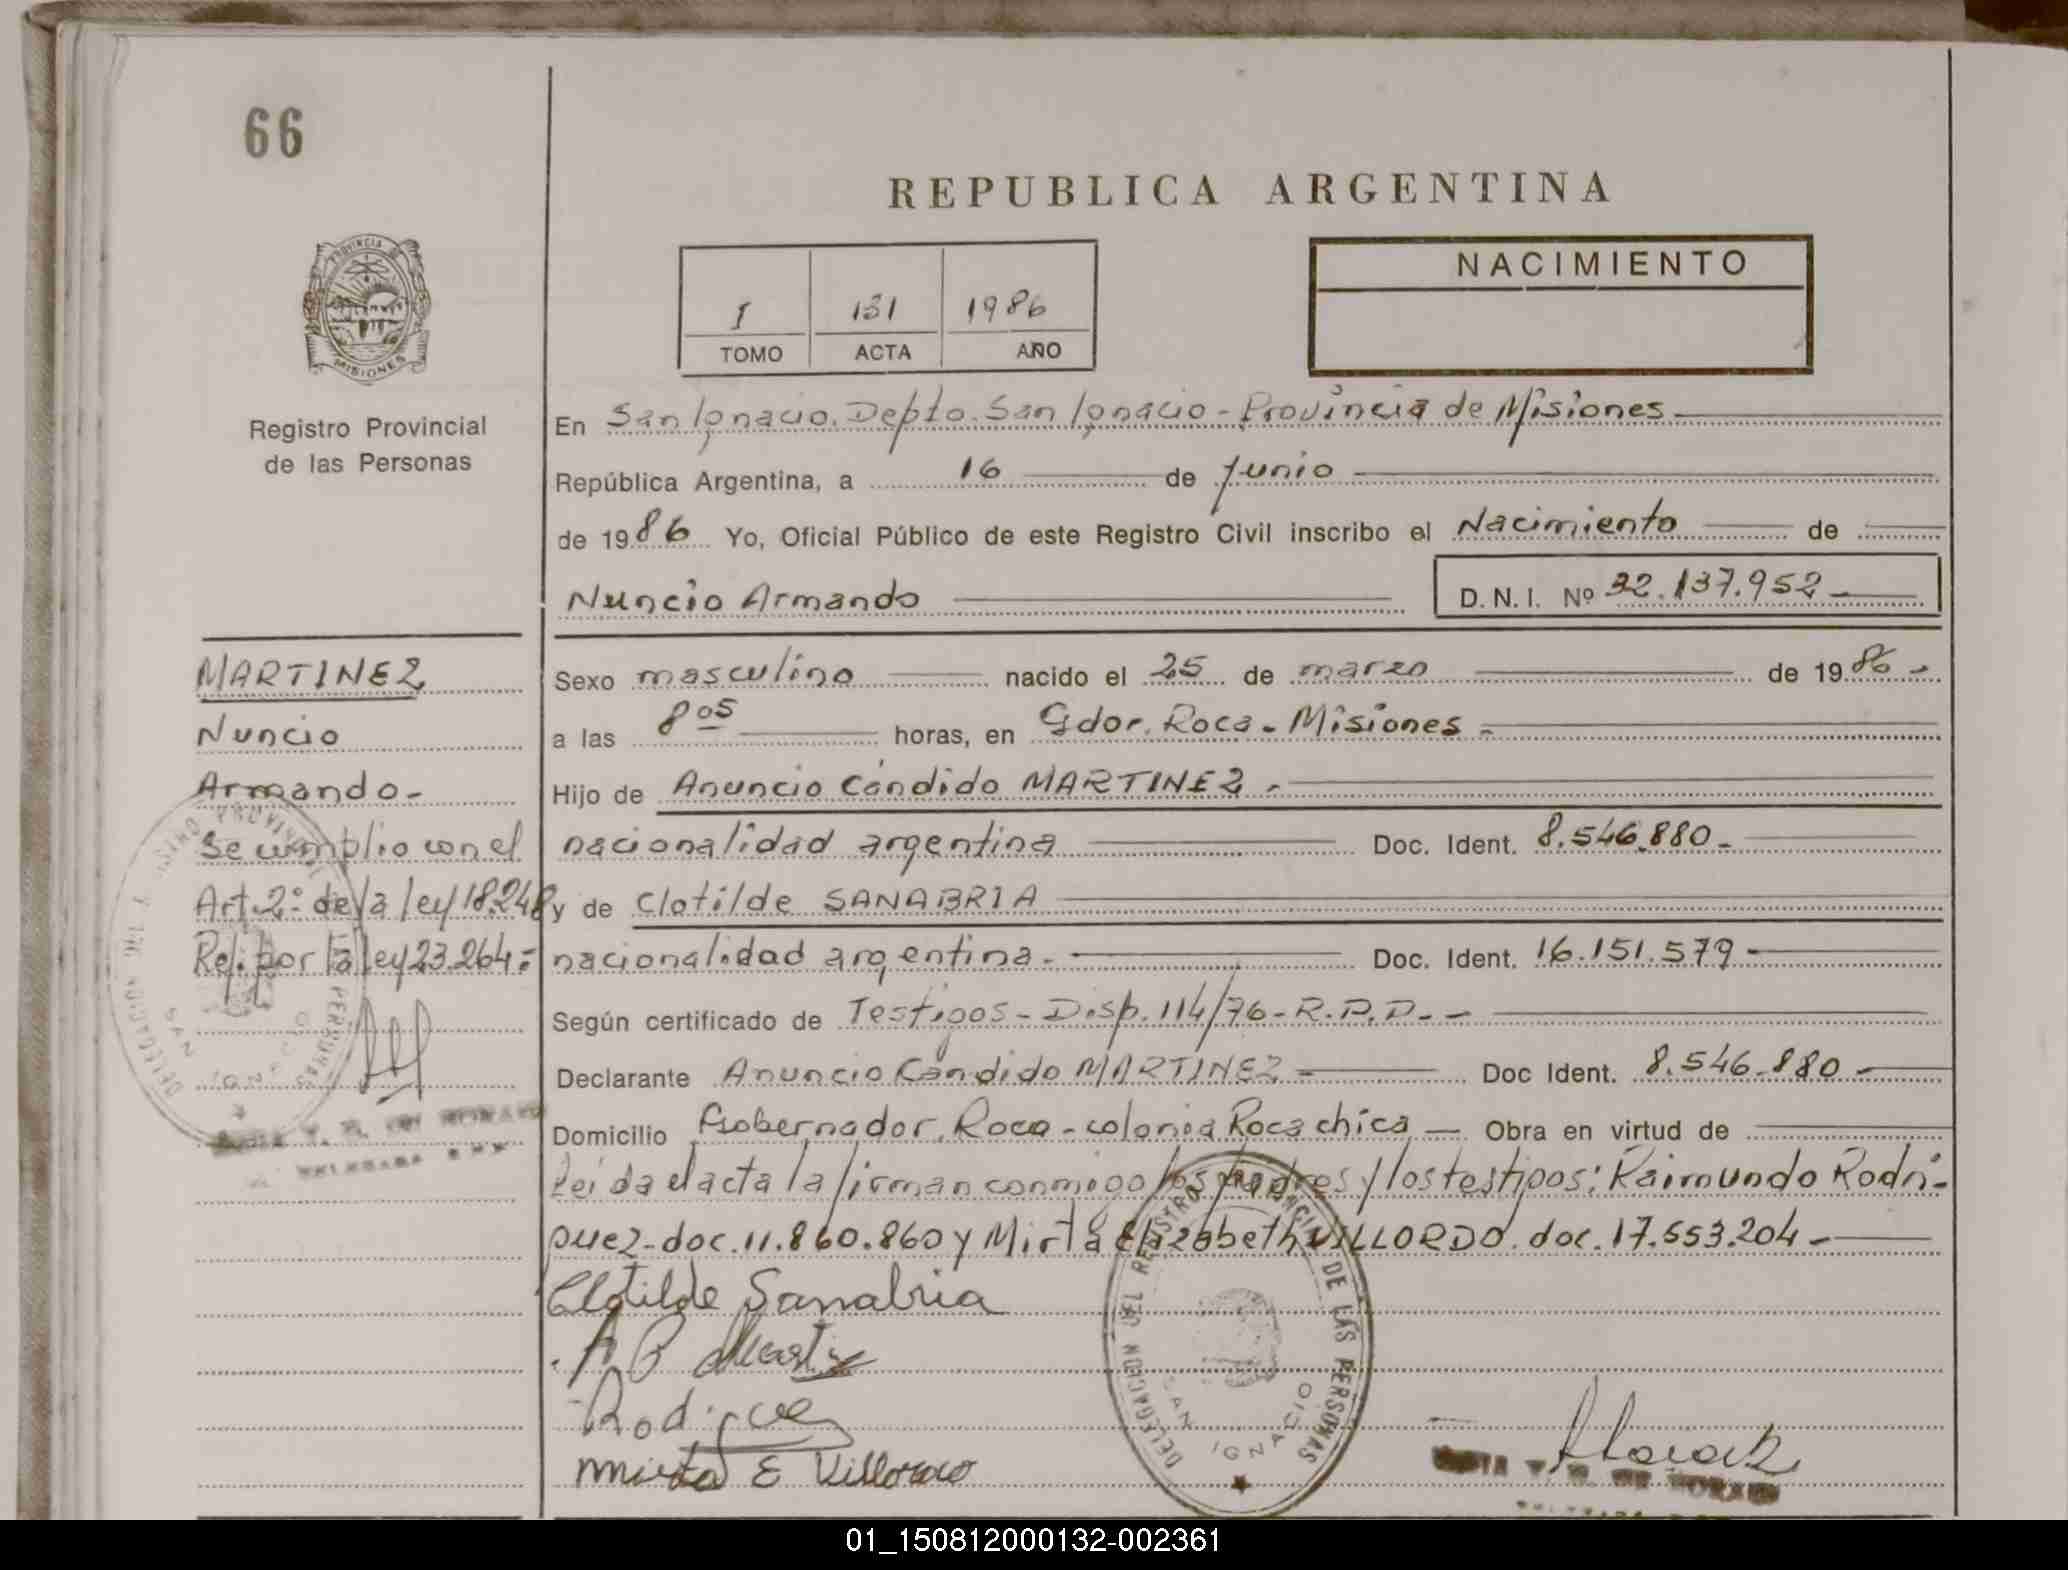 66
REPUBLICA ARGENTINA
PROVINCIA DE
MISIONES
NACIMIENTO
I 131 1986
TOMO ACTA AÑO
Registro Provincial
de las Personas
En San Ignacio. Depto. San Ignacio - Provincia de Misiones
República Argentina, a 16 de Junio
de 1986 Yo, Oficial Público de este Registro Civil inscribo el Nacimiento de
Nuncio Armando D.N.I. Nº 32.137.952
MARTINEZ
Nuncio
Armando-
Se cumplio con el
Art. 2º de la ley 18.248
Ref. por la ley 23.264=
Sexo masculino nacido el 25 de marzo de 1986-
a las 8 05 horas, en Gdor. Roca - Misiones -
Hijo de Anuncio Cándido MARTINEZ -
nacionalidad argentina Doc. Ident. 8.546.880-
y de Clotilde SANABRIA
nacionalidad argentina. Doc. Ident. 16.151.579-
Según certificado de Testigos - Disp. 114/76 - R.P.P. -
Declarante Anuncio Cándido MARTINEZ Doc Ident. 8.546.880-
Domicilio Gobernador Roca - colonia Roca chica Obra en virtud de
Leida el acta la firman conmigo los padres y los testigos: Raimundo Rodri-
guez - doc. 11.860.860 y Mirta Elizabeth VILLORDO. doc. 17.553.204-
Clotilde Sanabria
Rodriguez
Mirta E Villordo
DELEGACION DEL REGISTRO PROVINCIAL DE LAS PERSONAS
SAN IGNACIO
01_150812000132-002361